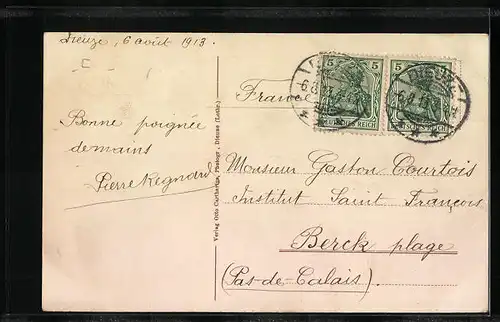 Dieuze, 6 août 1913.
Bonne poignée
de mains
Pierre Regnard
Verlag Otto Cartharius, Photogr., Dieuze (Lothr.)
France
5 5
DEUTSCHES REICH
5 5
DEUTSCHES REICH
DIEUZE
6.8.13
Monsieur Gaston Courtois
Institut Saint François
Berck plage
(Pas-de-Calais)